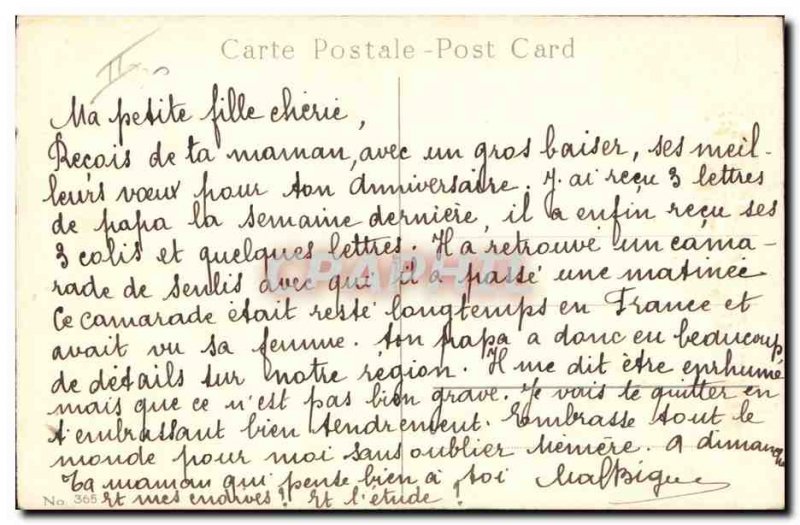 II
Carte Postale - Post Card
Ma petite fille chérie,
Reçois de ta maman, avec un gros baiser, ses meil-
leurs vœux pour ton anniversaire. J'ai reçu 3 lettres
de papa la semaine dernière, il a enfin reçu ses
3 colis et quelques lettres. Il a retrouvé un cama-
rade de Senlis avec qui il a passé une matinée
Ce camarade était resté longtemps en France et
avait vu sa femme. Ton papa a donc eu beaucoup
de détails sur notre région. Il me dit être enrhumé
mais que ce n'est pas bien grave. Je vais te quitter en
t'embrassant bien tendrement. Embrasse tout le
monde pour moi sans oublier Mémère. A dimanche
Ta maman qui pense bien à toi
No. 365 Et mes ? Et l'étude ?